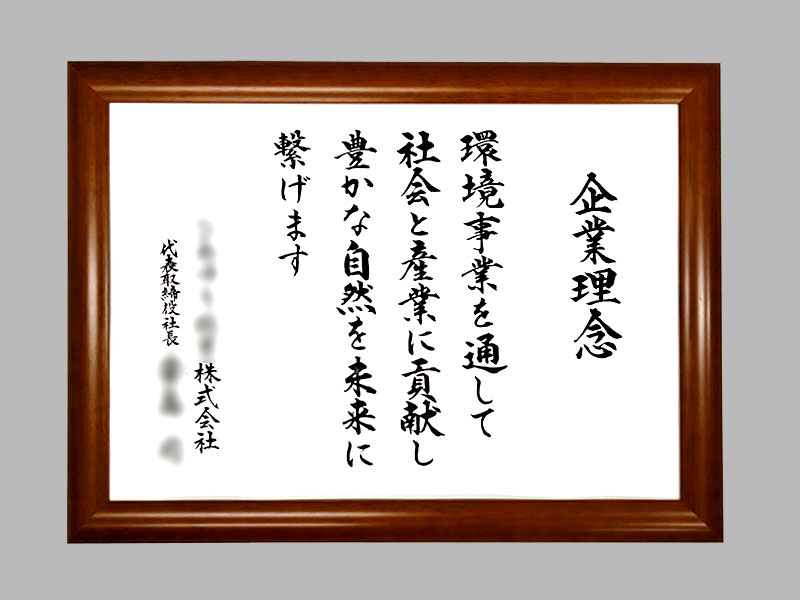 企業理念
環境事業を通して
社会と産業に貢献し
豊かな自然を未来に
繋げます
株式会社
代表取締役社長